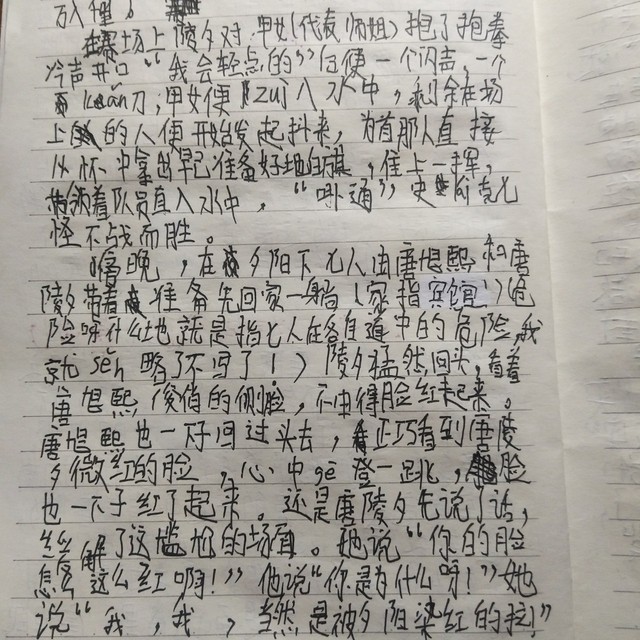 万人捶〉
在赛场上陵夕对甲女(代表师姐)抱了抱拳
冷声开口“我会轻点的”后便一个闪声,一个
kuan刀,甲女便zui入水中,剩余在场
上的人便开始发起抖来,为首那人直接
从怀中拿出早已准备好地白旗,往上一挥,
带领着队员直入水中,“卟通”史莱克七
怪不战而胜。
傍晚,在夕阳下七人由唐旭熙和唐
陵夕带着准备先回家一躺(家指宾馆)(危
险呀什么吐也就是指七人在各自道中的危险,我
就sěn略了不写了!)陵夕猛然回头,看着
唐旭熙俊俏的侧脸,不由得脸红起来。
唐旭熙也一下回过头去,正巧看到唐陵
夕微红的脸,心中gē登一跳,脸
也一下子红了起来。还是唐陵夕先说了话,
缓解了这尴尬的场面。她说“你的脸
怎么这么红啊!”他说“你是为什么呀!”她
说“我,我,当然是被夕阳染红的拉!”